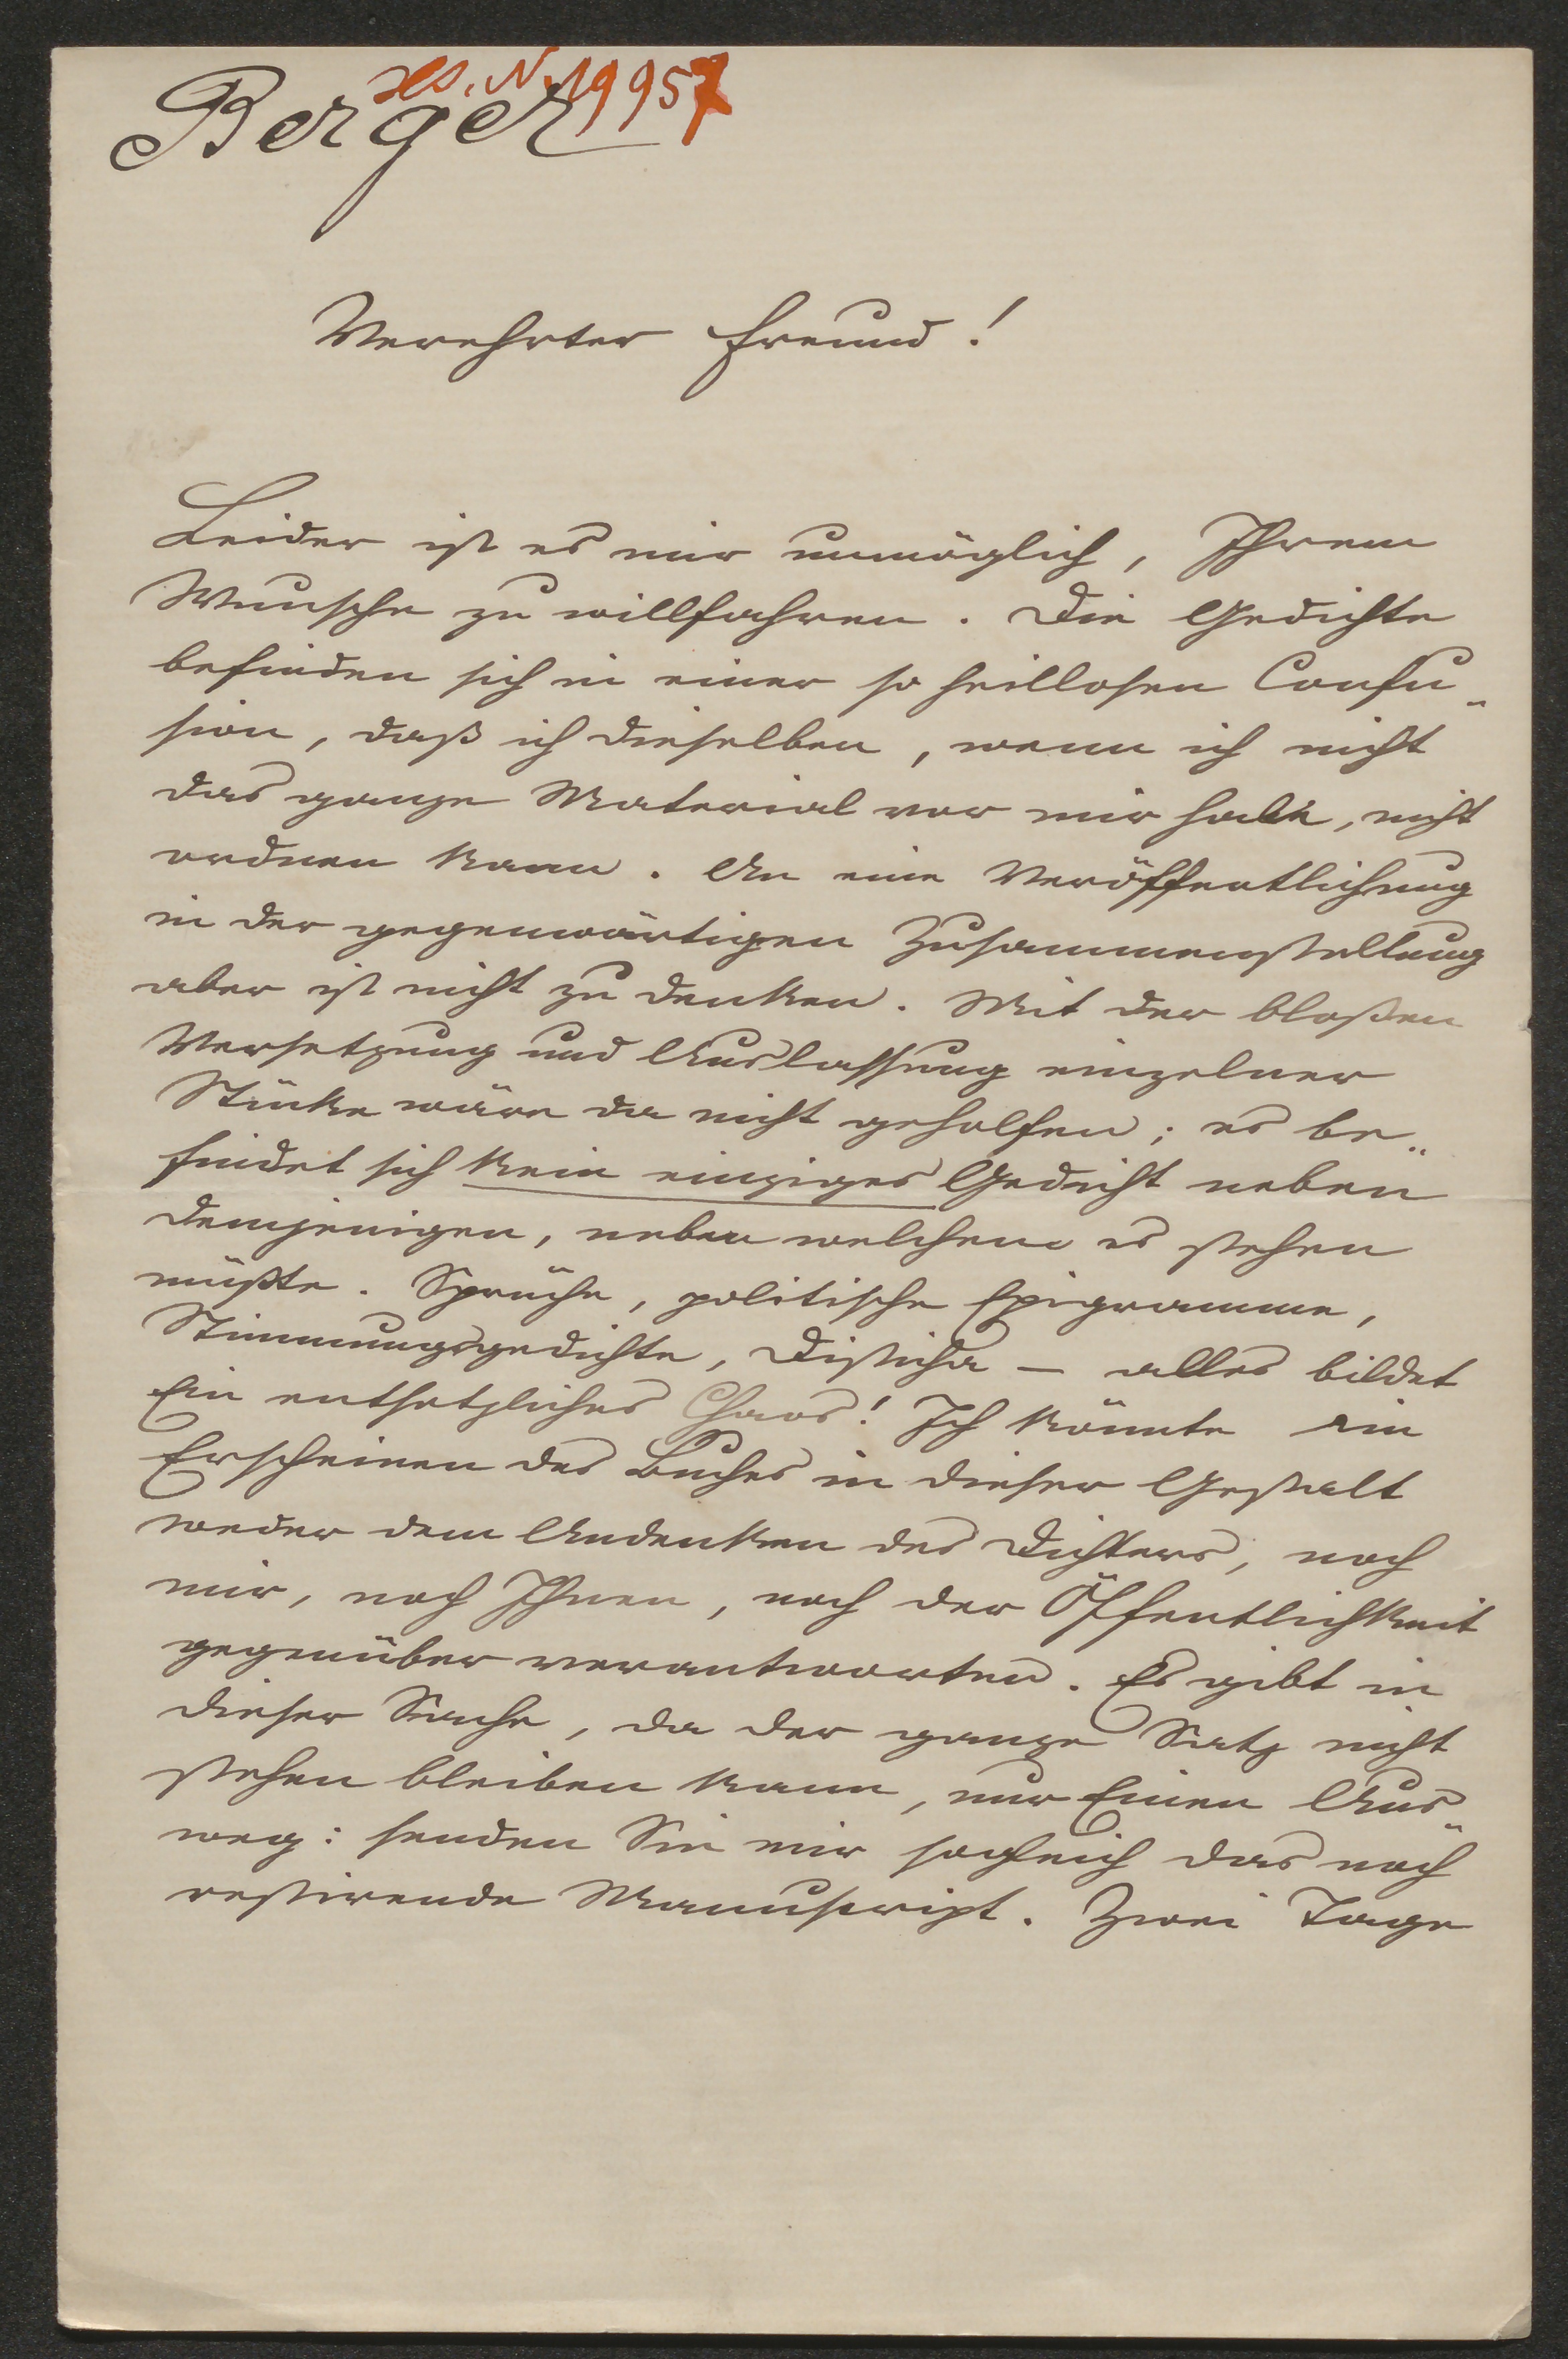 Hs. N. 19957
Berger
Verehrter Freund!
Leider ist es mir unmöglich, Ihrem
Wunsche zu willfahren. Die Gedichte
befinden sich in einer so heillosen Confu„
sion, daß ich dieselben, wenn ich nicht
das ganze Material vor mir habe, nicht
ordnen kann. An eine Veröffentlichung
in der gegenwärtigen Zusammenstellung
aber ist nicht zu denken. Mit der bloßen
Versetzung und Auslassung einzelner
Stücke wäre da nicht geholfen; es be„
findet sich kein einziges Gedicht neben
demjenigen, neben welchem es stehen
müßte. Sprüche, politische Epigramme,
Stimmungsgedichte, Disticha – alles bildet
Ein entsetzliches Chaos! Ich könnte ein
Erscheinen des Buches in dieser Gestalt
weder dem Andenken des Dichters, noch
mir, noch Ihnen, noch der Öffentlichkeit
gegenüber verantworten. Es gibt in
dieser Sache, da der ganze Satz nicht
stehen bleiben kann, nur Einen Aus„
weg: senden Sie mir sogleich das noch
restirende Manuskript. Zwei Tage